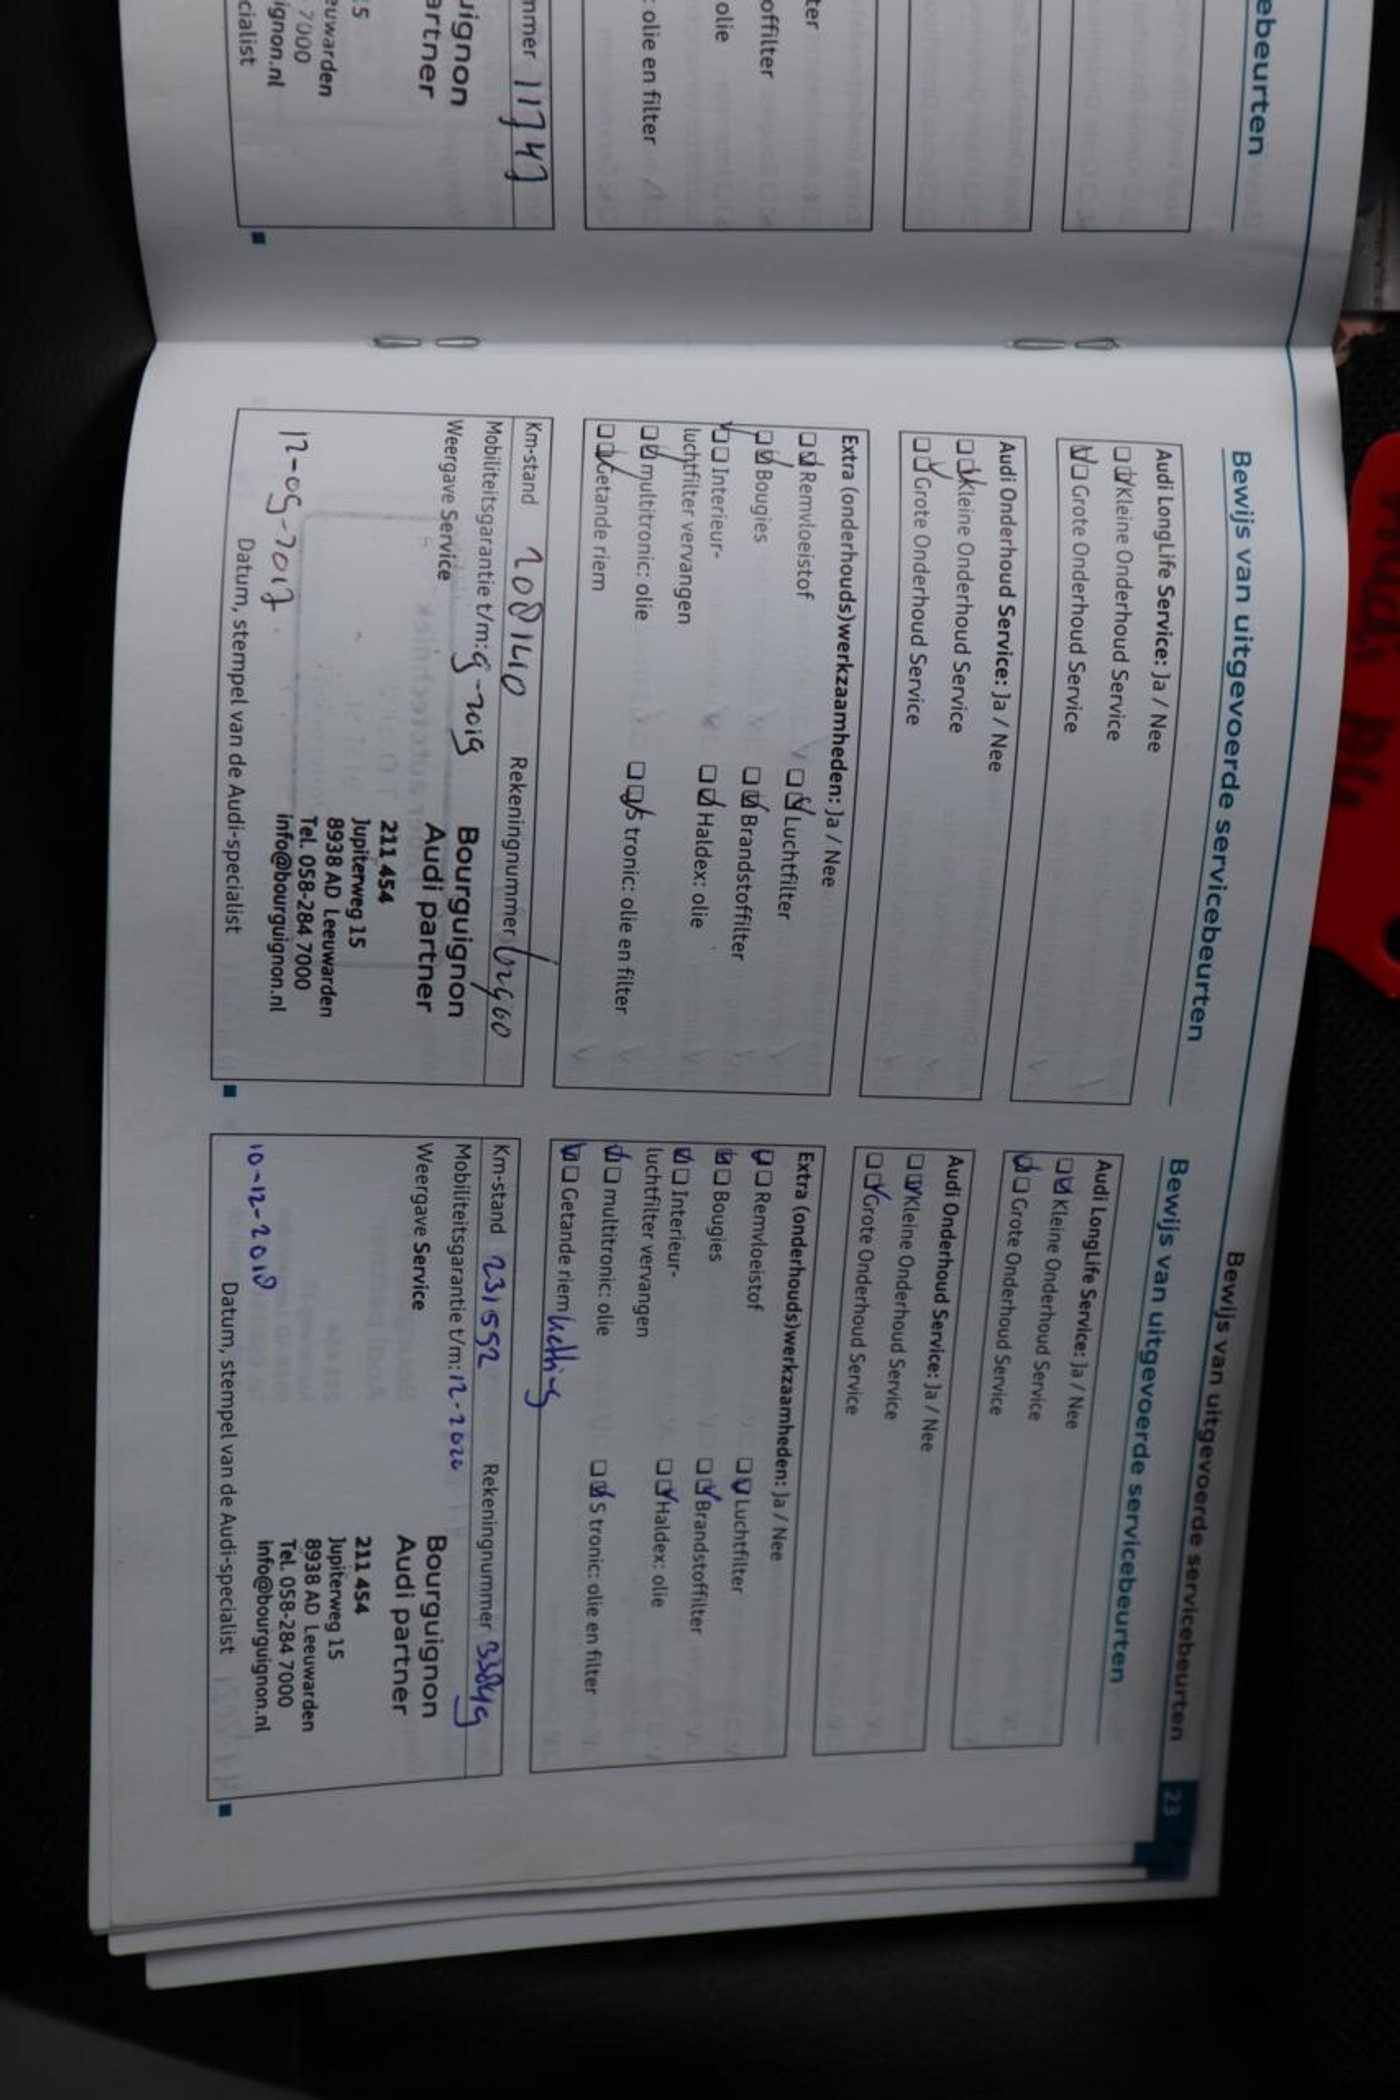 ebeurten
ter
offilter
olie
: olie en filter
mmer 11747
uignon
artner
15
euwarden
7000
ignon.nl
cialist
Bewijs van uitgevoerde servicebeurten
Audi LongLife Service: Ja / Nee
Kleine Onderhoud Service
Grote Onderhoud Service
Audi Onderhoud Service: Ja / Nee
Kleine Onderhoud Service
Grote Onderhoud Service
Extra (onderhouds)werkzaamheden: Ja / Nee
Remvloeistof Luchtfilter
Bougies Brandstoffilter
Interieur- Haldex: olie
luchtfilter vervangen
multitronic: olie S tronic: olie en filter
Getande riem
Km-stand 208140 Rekeningnummer
Mobiliteitsgarantie t/m: 9-2019
Weergave Service
Bourguignon
Audi partner
211 454
Jupiterweg 15
8938 AD Leeuwarden
Tel. 058-284 7000
info@bourguignon.nl
12-09-2017
Datum, stempel van de Audi-specialist
Bewijs van uitgevoerde servicebeurten
Bewijs van uitgevoerde servicebeurten
23
Audi LongLife Service: Ja / Nee
Kleine Onderhoud Service
Grote Onderhoud Service
Audi Onderhoud Service: Ja / Nee
Kleine Onderhoud Service
Grote Onderhoud Service
Extra (onderhouds)werkzaamheden: Ja / Nee
Remvloeistof Luchtfilter
Bougies Brandstoffilter
Interieur- Haldex: olie
luchtfilter vervangen
multitronic: olie S tronic: olie en filter
Getande riem ketting
Km-stand 231592 Rekeningnummer 33849
Mobiliteitsgarantie t/m: 12-2020
Weergave Service
Bourguignon
Audi partner
211 454
Jupiterweg 15
8938 AD Leeuwarden
Tel. 058-284 7000
info@bourguignon.nl
10-12-2018
Datum, stempel van de Audi-specialist